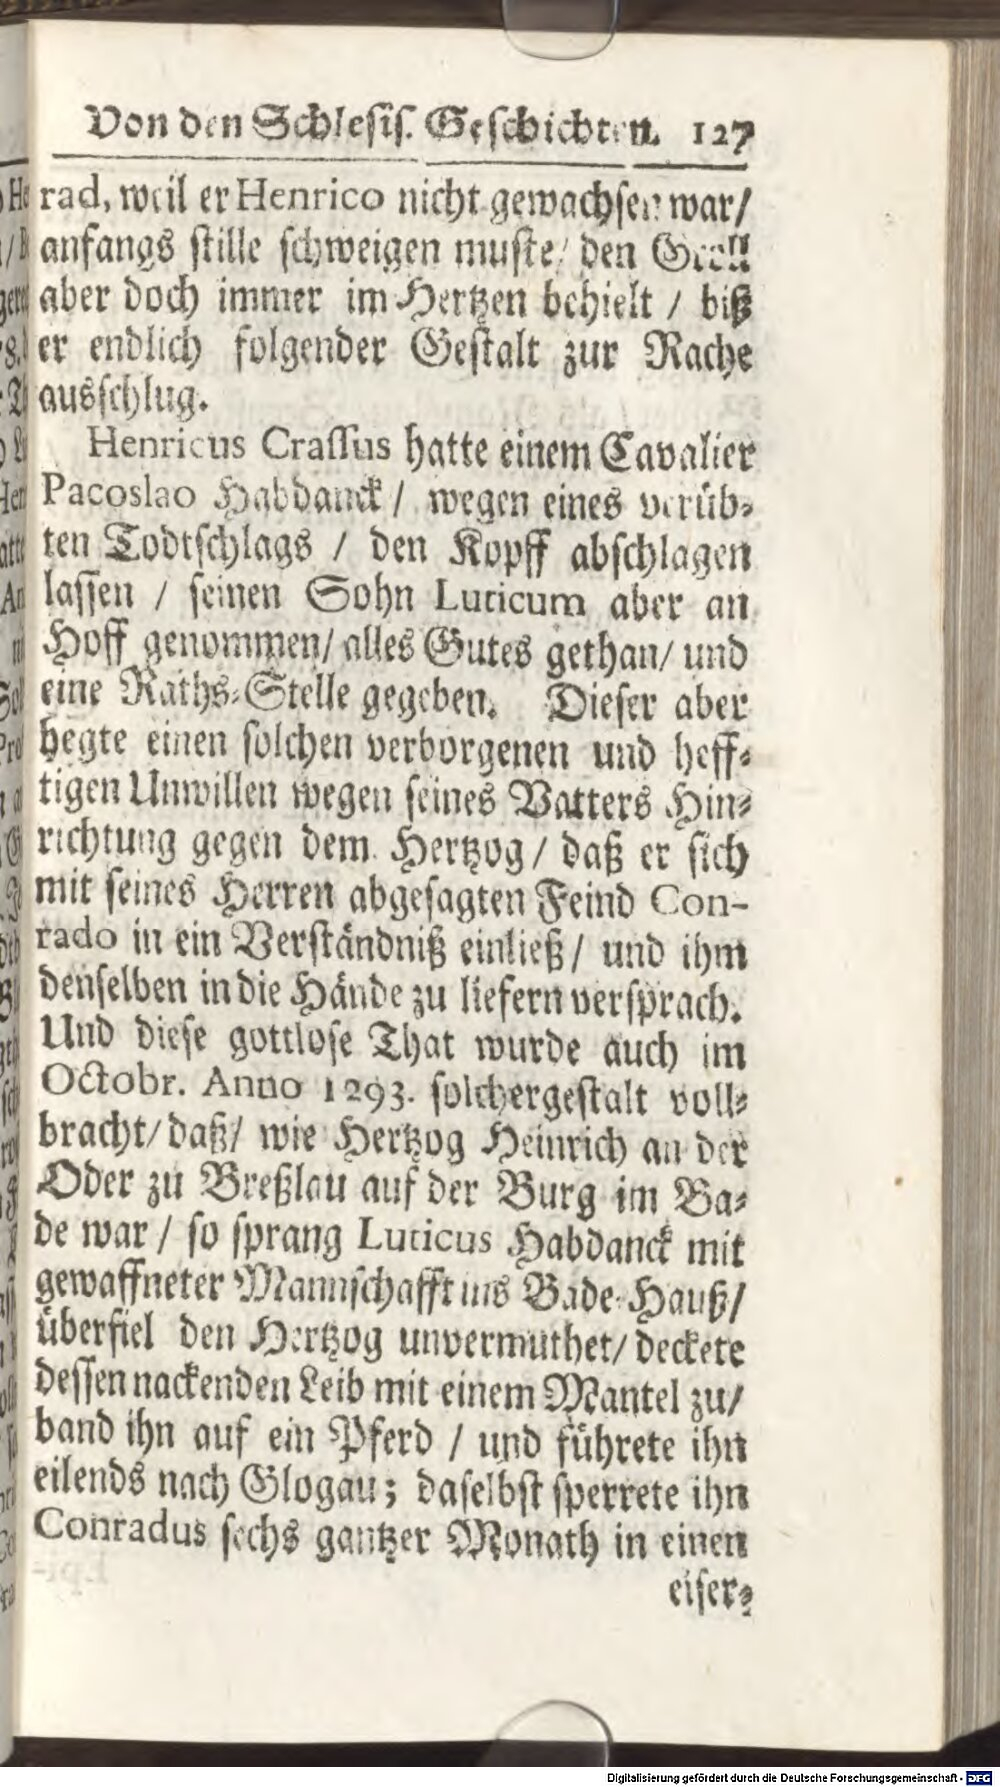 Von den Schlesis. Geschichten. 127
rad, weil er Henrico nicht gewachsen war/
anfangs stille schweigen muste/ den Groll
aber doch immer im Hertzen behielt / biß
er endlich folgender Gestalt zur Rache
ausschlug.
Henricus Crassus hatte einem Cavalier
Pacoslao Habdanck / wegen eines verüb-
ten Todtschlags / den Kopff abschlagen
lassen / seinen Sohn Luticum aber an
Hoff genommen/ alles Gutes gethan/ und
eine Raths-Stelle gegeben. Dieser aber
hegte einen solchen verborgenen und heff-
tigen Unwillen wegen seines Vatters Hin-
richtung gegen dem Hertzog / daß er sich
mit seines Herren abgesagten Feind Con-
rado in ein Verständniß einließ/ und ihm
denselben in die Hände zu liefern versprach.
Und diese gottlose That wurde auch im
Octobr. Anno 1293. solchergestalt voll-
bracht/ daß/ wie Hertzog Heinrich an der
Oder zu Breßlau auf der Burg im Ba-
de war / so sprang Luticus Habdanck mit
gewaffneter Mannschafft ins Bade-Hauß/
überfiel den Hertzog unvermuthet/ deckete
dessen nackenden Leib mit einem Mantel zu/
band ihn auf ein Pferd / und führete ihn
eilends nach Glogau; daselbst sperrete ihn
Conradus sechs gantzer Monath in einen
eiser-
Digitalisierung gefördert durch die Deutsche Forschungsgemeinschaft - DFG